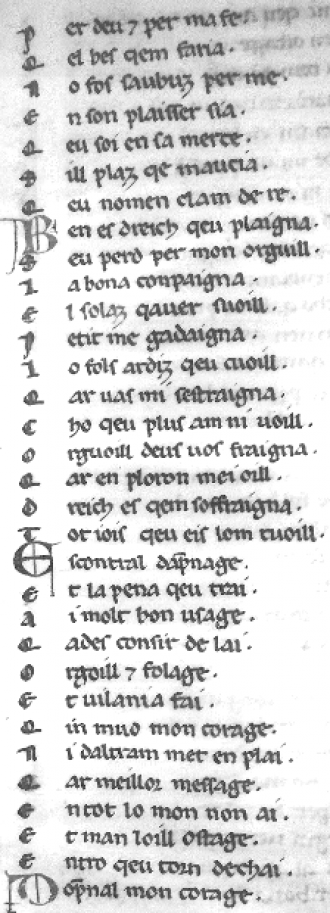 P er deu ⁊ per ma fe.
Q el bes qem faria.
N o fos saubuz per me.
E n son plaisser sia.
Q eu soi en sa merce.
S ill plaz qe maucia.
Q eu nomen clam de re.
B en es dreich qeu plaigna.
S eu perd per mon orguill.
L a bona conpaigna.
E l solaz qauer suoill.
P etit me gadaigna.
L o fols ardiz qeu cuoill.
Q ar uas mi sestraigna.
C ho qeu plus am ni uoill.
O rguoill deus uos fraigna.
Q ar en ploron mei oill.
D reich es qem soffraigna.
T ot iois qeu eis lom tuoill.
E scontral dāpnage.
E t la pena qeu trai.
A i molt bon usage.
Q ades consir de lai.
O rgoill ⁊ folage.
E t uilania fai.
Q in muo mon corage.
N i daltram met en plai.
Q ar meillor message.
E n tot lo mon non ai.
E t man loill ostage.
E ntro qeu torn dechai.
D op̄nal mon corage.